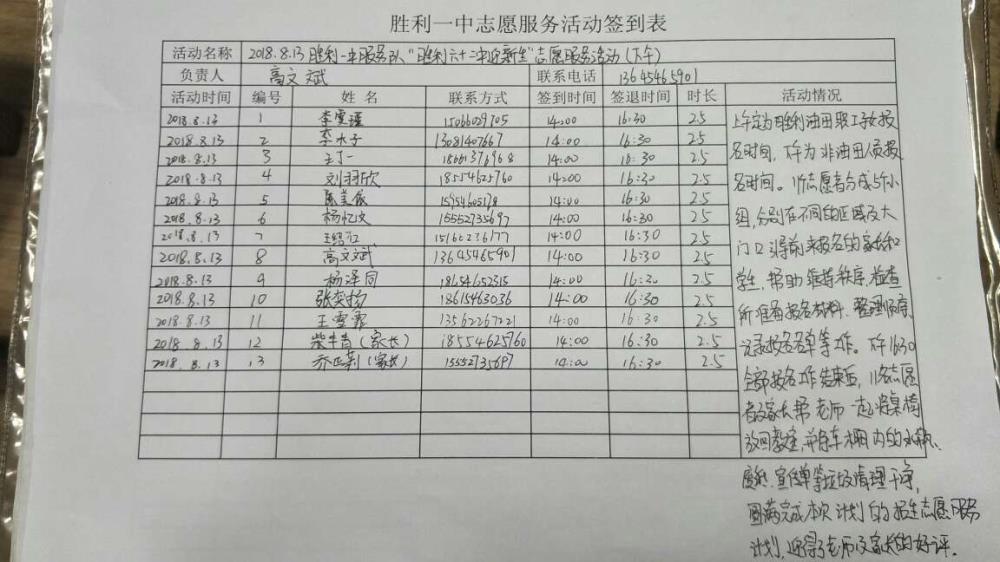 胜利一中志愿服务活动签到表
活动名称 2018.8.13 胜利一中服务队“胜利六十二中迎新生”志愿服务活动(下午)
负责人 高文斌 联系电话 13645465901
活动时间 编号 姓名 联系方式 签到时间 签退时间 时长 活动情况
2018.8.13 1 李雯瑾 15066029705 14:00 16:30 2.5
2018.8.13 2 李水子 13081407667 14:00 16:30 2.5
2018.8.13 3 王丁一 18661376968 14:00 16:30 2.5
2018.8.13 4 刘羽欣 18554625760 14:00 16:30 2.5
2018.8.13 5 陈美 15954605178 14:00 16:30 2.5
2018.8.13 6 杨忆文 15552735697 14:00 16:30 2.5
2018.8.13 7 王绍 15160236177 14:00 16:30 2.5
2018.8.13 8 高文斌 13645465901 14:00 16:30 2.5
2018.8.13 9 杨泽同 18654652515 14:00 16:30 2.5
2018.8.13 10 张奕扬 18615463036 14:00 16:30 2.5
2018.8.13 11 王雪霏 13562267221 14:00 16:30 2.5
2018.8.13 12 柴半青(家长) 18554625760 14:00 16:30 2.5
2018.8.13 13 乔莉(家长) 15552735697 14:00 16:30 2.5
上午定为胜利油田职工子女报
名时间,下午为非油田人员报
名时间。11名志愿者分成5个小
组,分别在不同的区域及大
门口引导前来报名的家长和
学生,帮助维持秩序,检查
所准备报名材料、整理顺序、
记录报名名单等工作。下午16:30
全部报名工作结束后,11名志愿
者及家长帮老师一起将桌椅
放回教室,并将车棚内的水瓶、
废纸、宣传单等垃圾清理干净,
圆满完成本次计划的招生志愿服务
计划,迎得了老师及家长的好评。